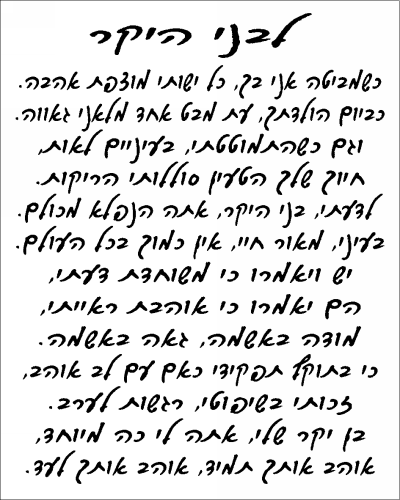 לבני היקר
כשמביטה אני בך, כל ישותי מוצפת אהבה.
כביום הולדתך, עת מבט אחד מלאני גאווה.
וגם כשהתמוטטתי, בעיניים לאות,
חיוך שלך הטעין סוללותי הריקות.
לדעתי, בני היקר, אתה הנפלא מכולם.
בעיני, מאור חיי, אין כמוך בכל העולם.
יש ויאמרו כי משוחדת דעתי,
הם יאמרו כי אוהבת ראייתי,
מודה באשמה, גאה באשמה.
כי בתוקף תפקידי כאם עם לב אוהב,
זכותי בשיפוטי, רגשות לערב.
בן יקר שלי, אתה לי כה מיוחד,
אוהב אותך תמיד, אוהב אותך לעד.